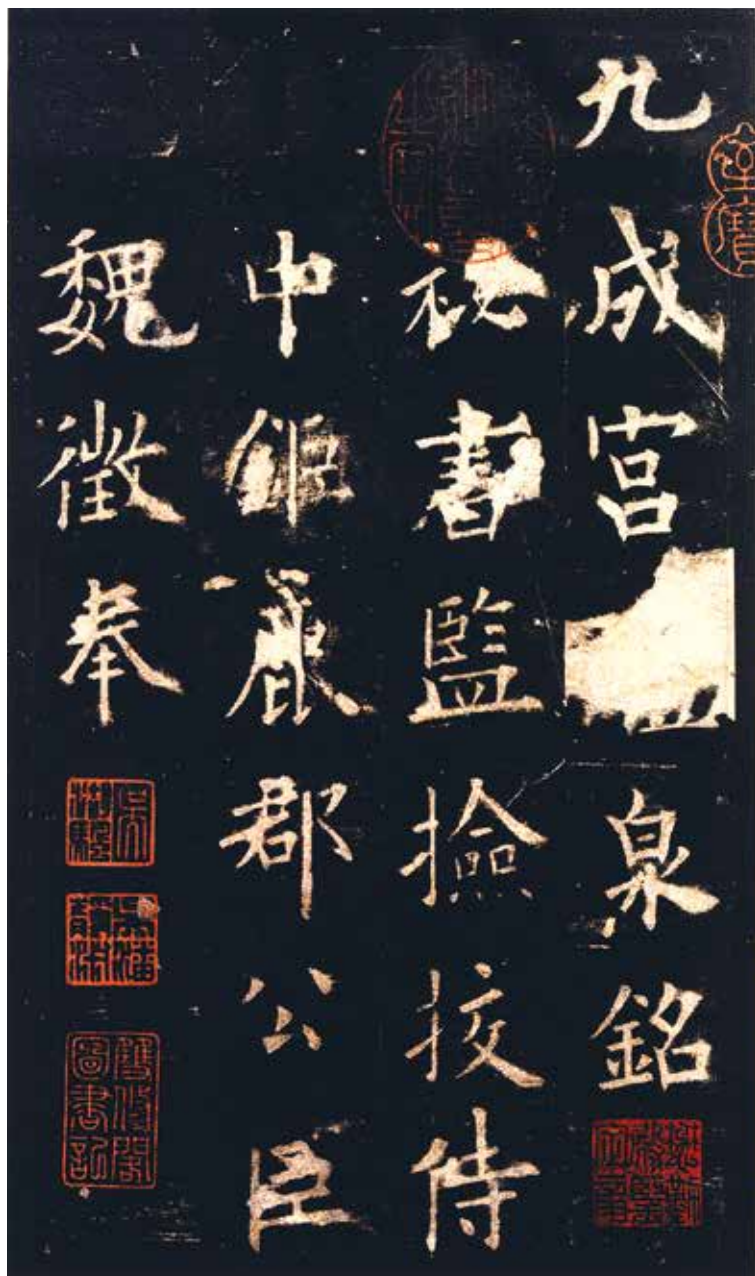 九成宮泉銘
秘書監撿挍侍
中鉅鹿郡公臣
魏徵奉